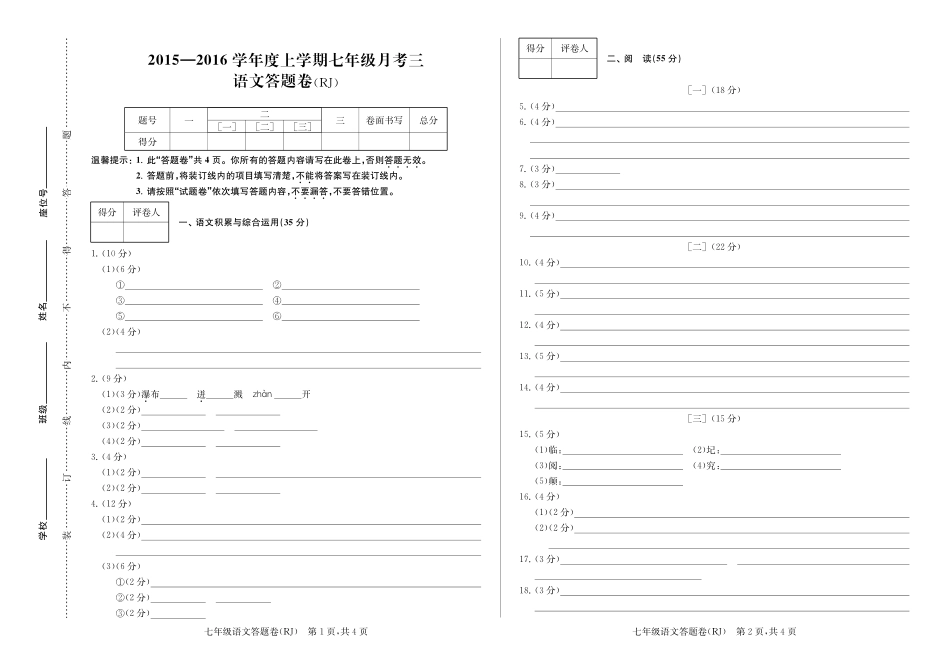 2015—2016 学年度上学期七年级月考三
语文答题卷(RJ)
题号 一 二 三 卷面书写 总分
[一] [二] [三]
得分
温馨提示: 1. 此“答题卷”共 4 页。你所有的答题内容请写在此卷上,否则答题无效。
2. 答题前,将装订线内的项目填写清楚,不能将答案写在装订线内。
3. 请按照“试题卷”依次填写答题内容,不要漏答,不要答错位置。
得分 评卷人
一、语文积累与综合运用(35 分)
1. (10 分)
(1)(6 分)
① ②
③ ④
⑤ ⑥
(2)(4 分)
2. (9 分)
(1)(3 分)瀑布 迸 溅 zhàn 开
(2)(2 分)
(3)(2 分)
(4)(2 分)
3. (4 分)
(1)(2 分)
(2)(2 分)
4. (12 分)
(1)(2 分)
(2)(4 分)
(3)(6 分)
①(2 分)
②(2 分)
③(2 分)
七年级语文答题卷(RJ) 第 1 页,共 4 页
座位号
姓名
班级
学校
题
答
得
不
内
线
订
装
得分 评卷人
二、阅 读(55 分)
[一](18 分)
5. (4 分)
6. (4 分)
7. (3 分)
8. (3 分)
9. (4 分)
[二](22 分)
10. (4 分)
11. (5 分)
12. (4 分)
13. (5 分)
14. (4 分)
[三](15 分)
15. (5 分)
(1)临: (2)圮:
(3)阅: (4)究:
(5)颠:
16. (4 分)
(1)(2 分)
(2)(2 分)
17. (3 分)
18. (3 分)
七年级语文答题卷(RJ) 第 2 页,共 4 页